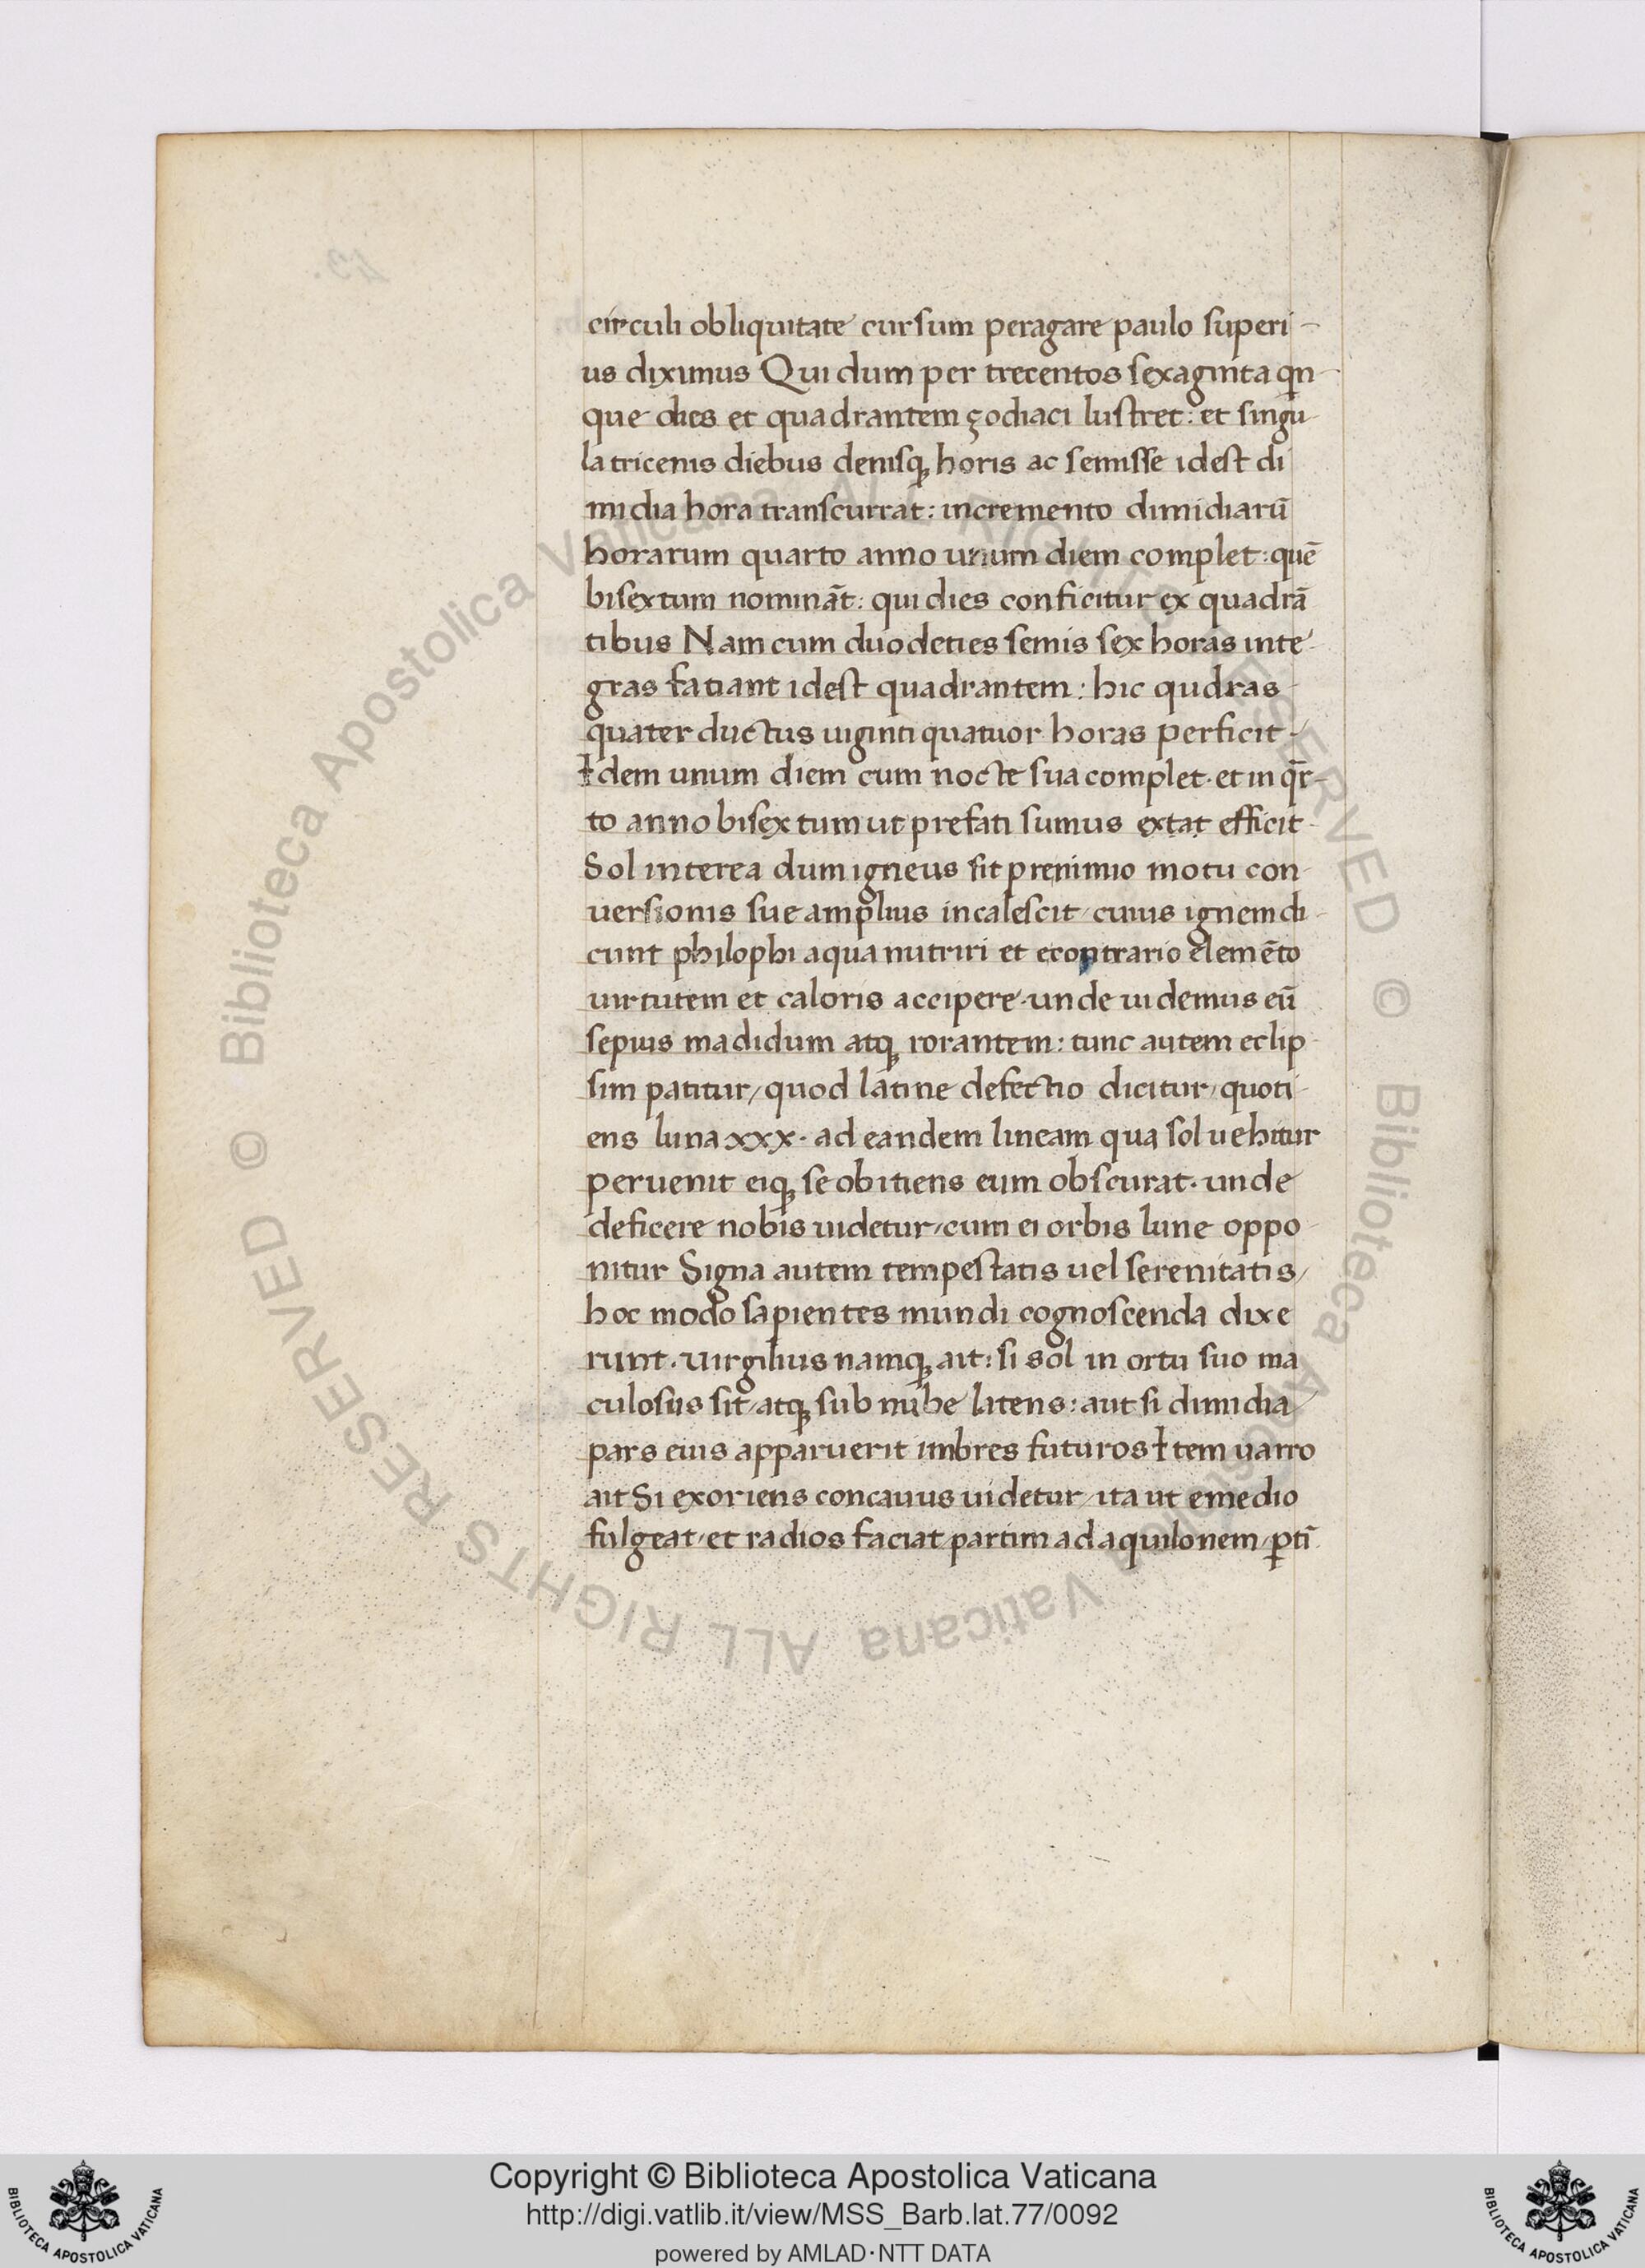 circuli obliquitate cursum peragare paulo superi-
us diximus Qui dum per trecentos sexaginta qn-
que dies et quadrantem çodiaci lustret: et singu-
la tricenis diebus denisq; horis ac semisse idest di
midia hora transcurrat: incremento dimidiarū
horarum quarto anno unum diem complet: quē
bisextum nominãt: qui dies conficitur ex quadrã
tibus Nam cum duodeties semis sex horas inte-
gras fatiant idest quadrantem: hic qudras-
quater ductus uiginti quatuor horas perficit-/
Idem unum diem cum nocte sua complet. et in qr̄-
to anno bisextum ut prefati sumus extat efficit-
Sol interea dum igneus sit prenimio motu con-
uersionis sue amplius incalescit/ cuius ignem di-
cunt philophi aqua nutriri et econtrario elemēto
uirtutem et caloris accipere. unde uidemus eū
sepius madidum atq; rorantem: tunc autem eclip-
sim patitur/ quod latine defectio dicitur/ quoti-
ens luna xxx. ad eandem lineam qua sol uehitur
peruenit eiq; se obitiens eum obscurat. unde
deficere nobis uidetur/ cum ei orbis lune oppo-
nitur Signa autem tempestatis uel serenitatis/
hoc modo sapientes mundi cognoscenda dixe
runt. uirgilius namq; ait: si sol in ortu suo ma
culosus sit/ atq; sub nube latens: aut si dimidia
pars eius apparuerit imbres futuros Item uarro
ait Si exoriens concauus uidetur/ ita ut emedio
fulgeat/ et radios faciat partim ad aquilonem/ ꝑtī
Copyright © Biblioteca Apostolica Vaticana
http://digi.vatlib.it/view/MSS_Barb.lat.77/0092
powered by AMLAD·NTT DATA
BIBLIOTECA APOSTOLICA VATICANA
BIBLIOTECA APOSTOLICA VATICANA
© Biblioteca Apostolica Vaticana ALL RIGHTS RESERVED © Biblioteca Apostolica Vaticana ALL RIGHTS RESERVED